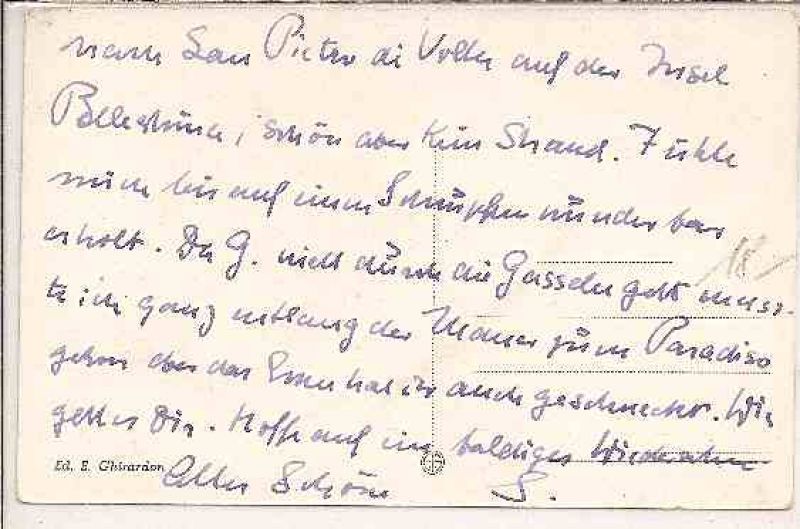 nach San Pietro di Volta auf der Insel
Pellestrina, schön aber kein Strand. Fühle
mich bis auf einen Schnupfen wunderbar
erholt. Da G. nicht durch die Gasseln geht muss-
te ich ganz entlang der Mauer zum Paradiso
gehen aber das Essen hat ihr auch geschmeckt. Wie
geht es Dir. Hoffe auf ein baldiges Wiedersehen
Alles Schöne S.
18
Ed. E. Ghirardon